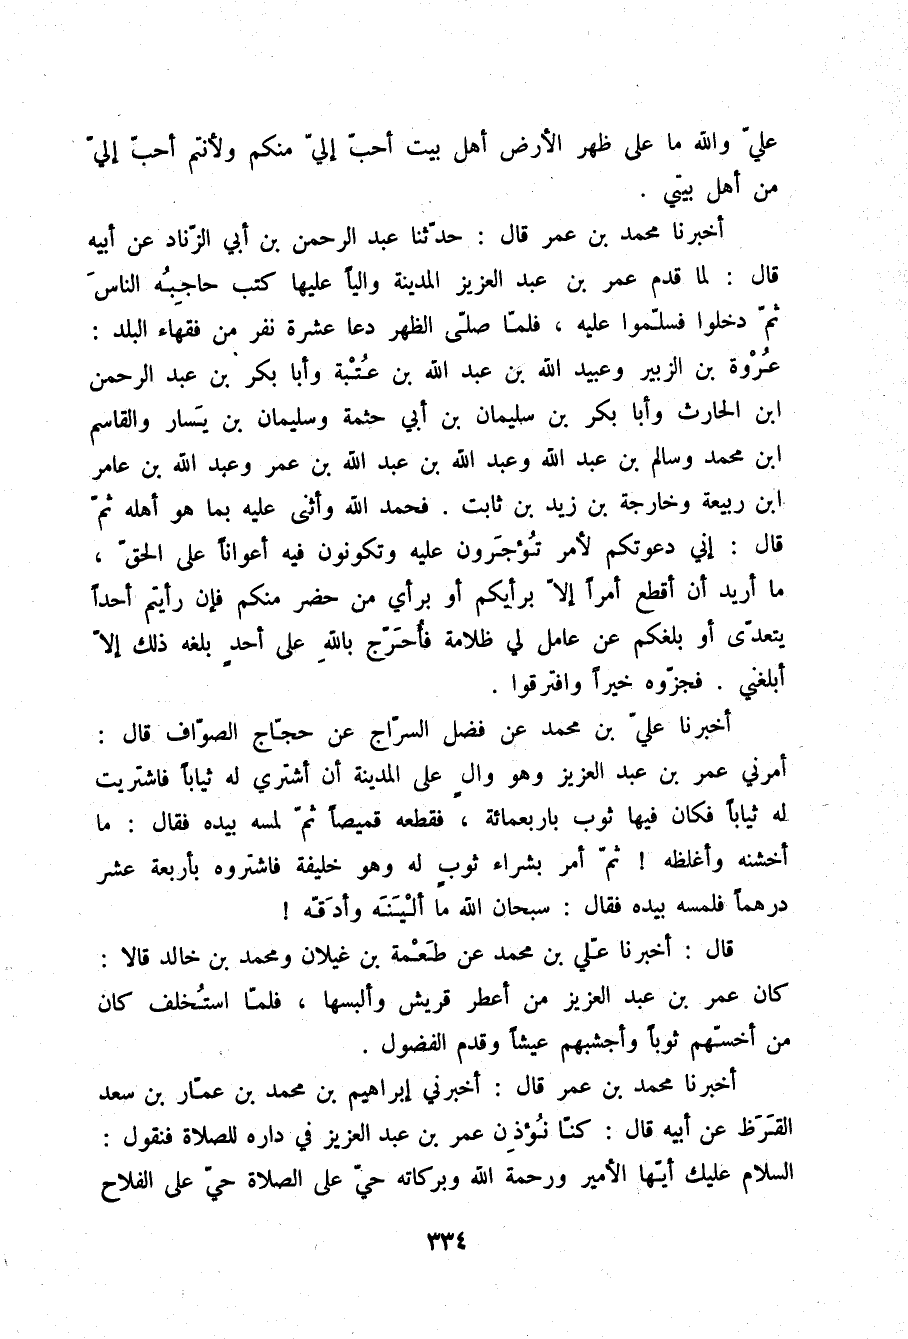 عليّ والله ما على ظهر الأرض أهل بيت أحبّ إليّ منكم ولأنتم أحبّ إليّ
من أهل بيتي .
أخبرنا محمد بن عمر قال : حدّثنا عبد الرحمن بن أبي الزّناد عن أبيه
قال : لما قدم عمر بن عبد العزيز المدينة والياً عليها كتب حاجِبُه الناسَ
ثمّ دخلوا فسلّموا عليه ، فلمّا صلّى الظهر دعا عشرة نفر من فقهاء البلد :
عُرْوة بن الزبير وعبيد الله بن عبد الله بن عُتْبة وأبا بكر بن عبد الرحمن
ابن الحارث وأبا بكر بن سليمان بن أبي حثمة وسليمان بن يَسار والقاسم
ابن محمد وسالم بن عبد الله وعبد الله بن عبد الله بن عمر وعبد الله بن عامر
ابن ربيعة وخارجة بن زيد بن ثابت . فحمد الله وأثنى عليه بما هو أهله ثمّ
قال : إني دعوتكم لأمر تُؤجَرون عليه وتكونون فيه أعواناً على الحقّ ،
ما أريد أن أقطع أمراً إلاّ برأيكم أو برأي من حضر منكم فإن رأيتم أحداً
يتعدّى أو بلغكم عن عامل لي ظلامة فأُحَرّج باللهِ على أحدٍ بلغه ذلك إلاّ
أبلغني . فجزّوه خيراً وافترقوا .
أخبرنا عليّ بن محمد عن فضل السرّاج عن حجّاج الصوّاف قال :
أمرني عمر بن عبد العزيز وهو والٍ على المدينة أن أشتري له ثياباً فاشتريت
له ثياباً فكان فيها ثوب باربعمائة ، فقطعه قميصاً ثمّ لمسه بيده فقال : ما
أخشنه وأغلظه ! ثمّ أمر بشراء ثوبٍ له وهو خليفة فاشتروه بأربعة عشر
درهماً فلمسه بيده فقال : سبحان الله ما ألْيَنَه وأدَقّه !
قال : أخبرنا عليّ بن محمد عن طَعْمة بن غيلان ومحمد بن خالد قالا :
كان عمر بن عبد العزيز من أعطر قريش وألبسها ، فلمّا استُخلف كان
من أخسّهم ثوباً وأجشبهم عيشاً وقدم الفضول .
أخبرنا محمد بن عمر قال : أخبرني إبراهيم بن محمد بن عمّار بن سعد
القَرَظ عن أبيه قال : كنّا نُؤذِن عمر بن عبد العزيز في داره للصلاة فنقول :
السلام عليك أيّها الأمير ورحمة الله وبركاته حيّ على الصلاة حيّ على الفلاح
٣٣٤